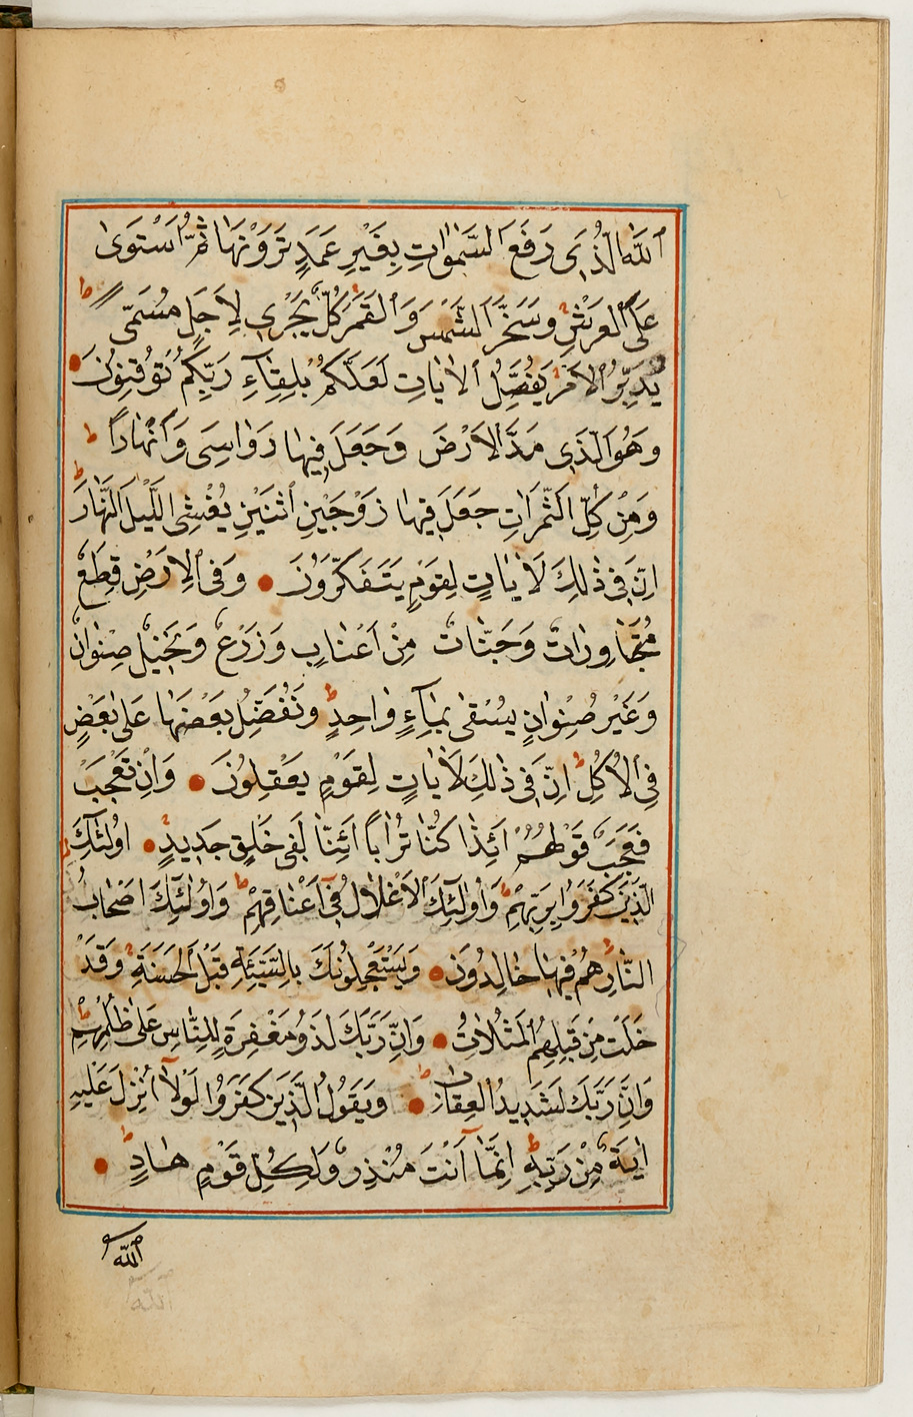 اَللّٰهُ الَّذِى رَفَعَ السَّمٰوَاتِ بِغَيْرِ عَمَدٍ تَرَوْنَهَا ثُمَّ اسْتَوٰى
عَلَى الْعَرْشِ وَسَخَّرَ الشَّمْسَ وَالْقَمَرَ كُلٌّ يَجْرِى لِاَجَلٍ مُسَمًّى ط
يُدَبِّرُ الْاَمْرَ يُفَصِّلُ الْاٰيَاتِ لَعَلَّكُمْ بِلِقَآءِ رَبِّكُمْ تُوقِنُونَ
وَهُوَ الَّذِى مَدَّ الْاَرْضَ وَجَعَلَ فِيهَا رَوَاسِىَ وَاَنْهَارًا ط
وَمِنْ كُلِّ الثَّمَرَاتِ جَعَلَ فِيهَا زَوْجَيْنِ اثْنَيْنِ يُغْشِى اللَّيْلَ النَّهَارَ ط
اِنَّ فِى ذٰلِكَ لَاٰيَاتٍ لِقَوْمٍ يَتَفَكَّرُونَ وَفِى الْاَرْضِ قِطَعٌ
مُتَجَاوِرَاتٌ وَجَنَّاتٌ مِنْ اَعْنَابٍ وَزَرْعٌ وَنَخِيلٌ صِنْوَانٌ
وَغَيْرُ صِنْوَانٍ يُسْقٰى بِمَآءٍ وَاحِدٍ ط وَنُفَضِّلُ بَعْضَهَا عَلٰى بَعْضٍ
فِى الْاُكُلِ ط اِنَّ فِى ذٰلِكَ لَاٰيَاتٍ لِقَوْمٍ يَعْقِلُونَ وَاِنْ تَعْجَبْ
فَعَجَبٌ قَوْلُهُمْ ائِذَا كُنَّا تُرَابًا ائِنَّا لَفِى خَلْقٍ جَدِيدٍ اُولٰٓئِكَ
الَّذِينَ كَفَرُوا بِرَبِّهِمْ ط وَاُولٰٓئِكَ الْاَغْلَالُ فِىٓ اَعْنَاقِهِمْ ط وَاُولٰٓئِكَ اَصْحَابُ
النَّارِ هُمْ فِيهَا خَالِدُونَ وَيَسْتَعْجِلُونَكَ بِالسَّيِّئَةِ قَبْلَ الْحَسَنَةِ وَقَدْ
خَلَتْ مِنْ قَبْلِهِمُ الْمَثُلَاتُ وَاِنَّ رَبَّكَ لَذُو مَغْفِرَةٍ لِلنَّاسِ عَلٰى ظُلْمِهِمْ ط
وَاِنَّ رَبَّكَ لَشَدِيدُ الْعِقَابِ وَيَقُولُ الَّذِينَ كَفَرُوا لَوْلَآ اُنْزِلَ عَلَيْهِ
اٰيَةٌ مِنْ رَبِّهِ ط اِنَّمَآ اَنْتَ مُنْذِرٌ وَلِكُلِّ قَوْمٍ هَادٍ ط
اَللّٰهُ